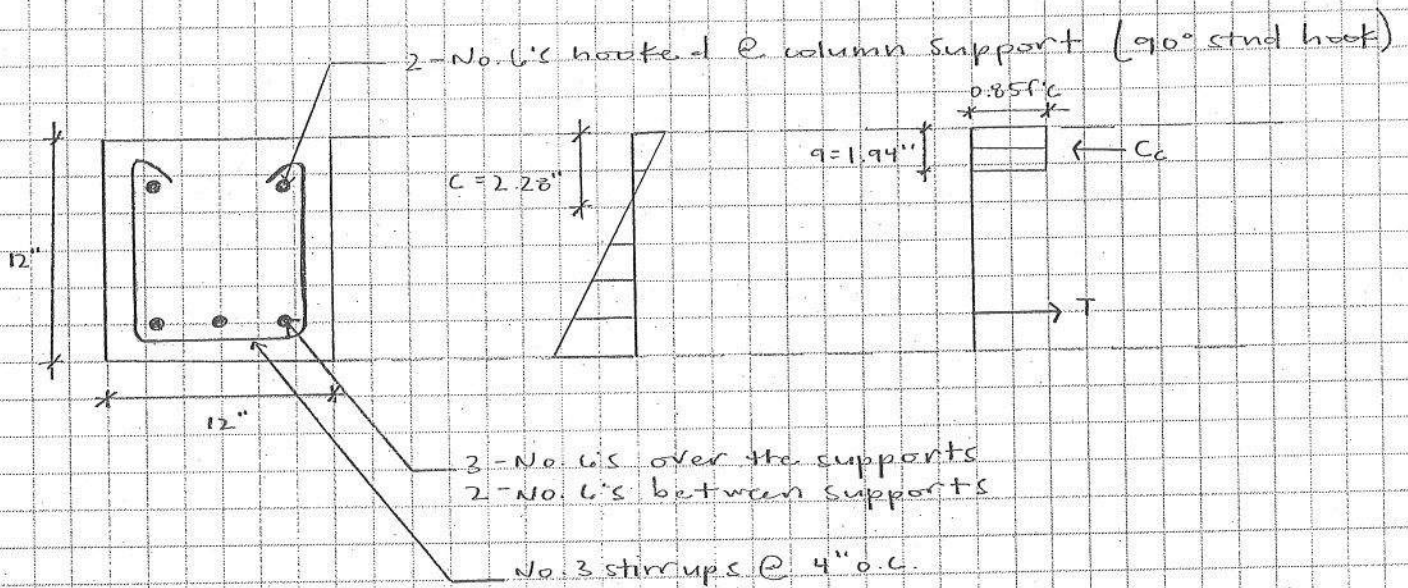 2-No. 6's hooked @ column support (90° stnd hook)
0.85f'c
a=1.94"
Cc
c = 2.28"
12"
T
12"
3-No. 6's over the supports
2-No. 6's between supports
No. 3 stirrups @ 4" o.c.